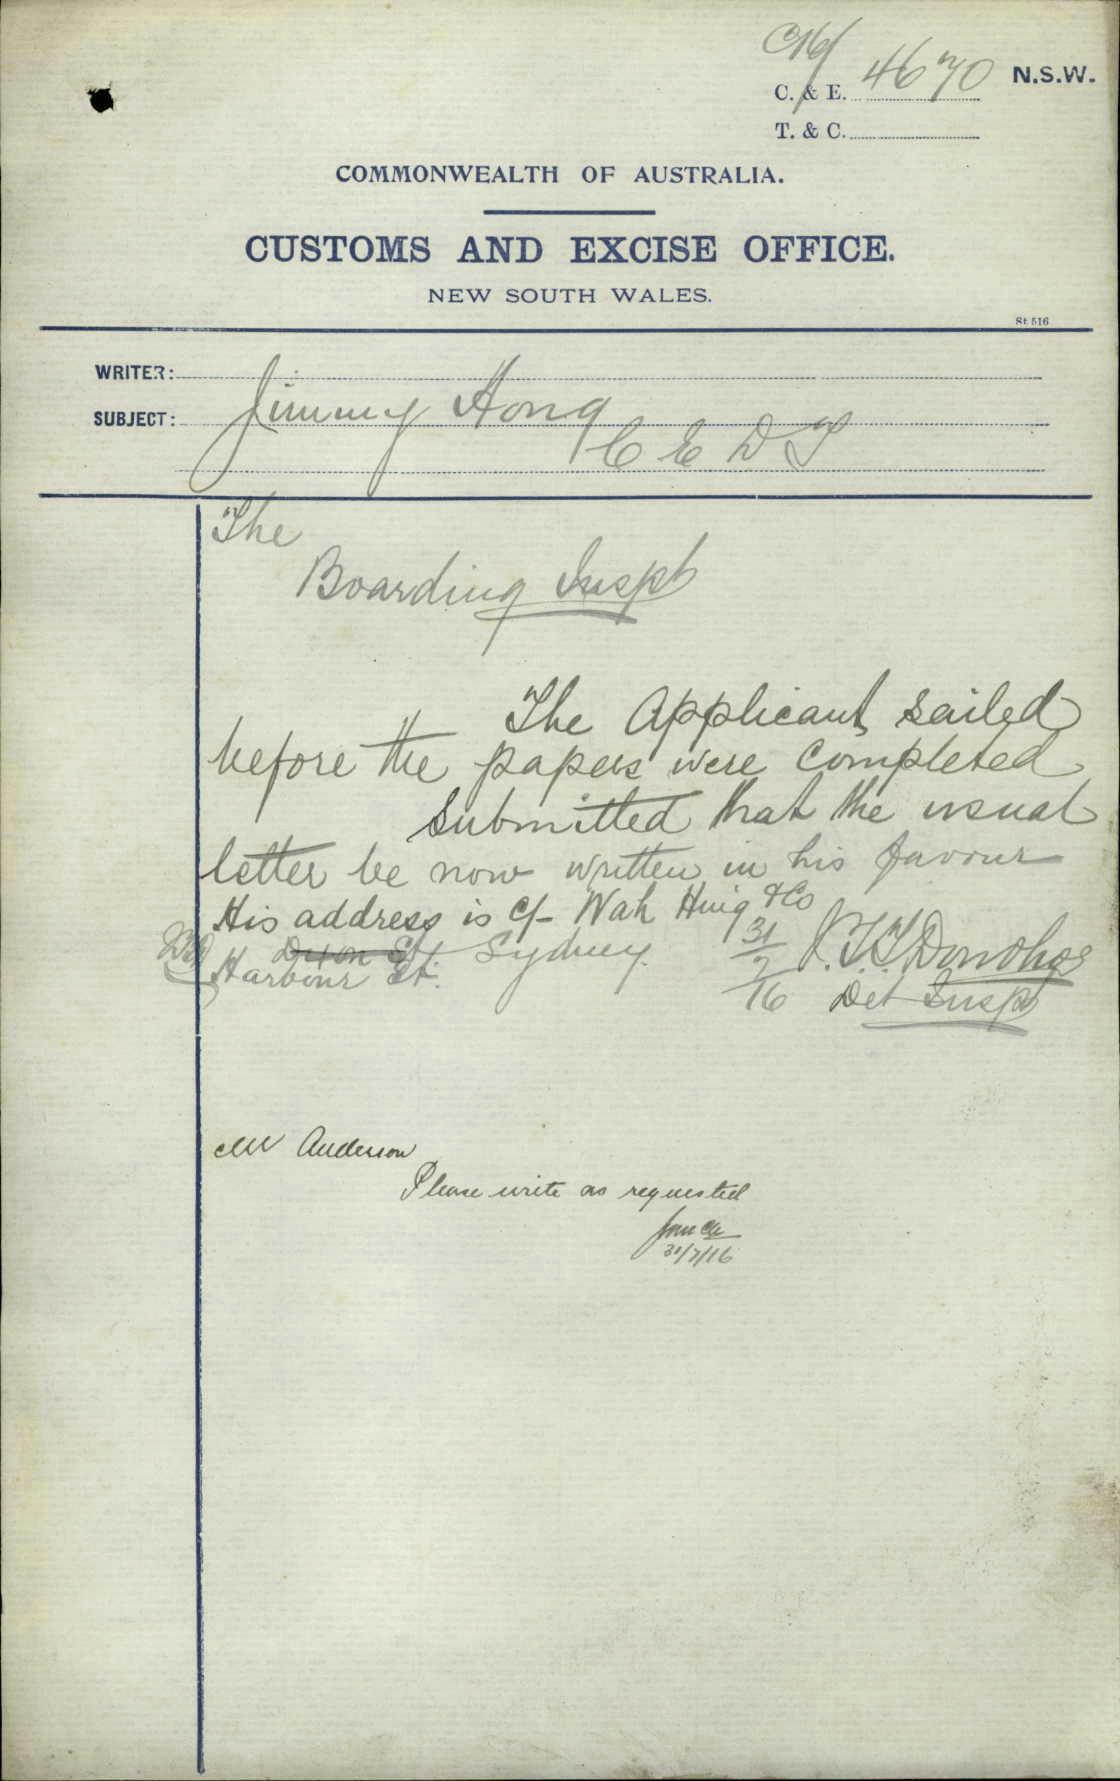 C16/
C. & E. 4670 N.S.W.
T. & C.
COMMONWEALTH OF AUSTRALIA.
CUSTOMS AND EXCISE OFFICE.
NEW SOUTH WALES.
St. 516
WRITER:
SUBJECT: Jimmy Hong
C E D T
The
Boarding Inspt
The Applicant sailed
before the papers were completed
Submitted that the usual
letter be now written in his favour
His address is c/- Wah Hing & Co
Dixon St. Sydney.
Harbour St.
31/7/16 J.T.T. Donohoe
Det Insp
Mr Anderson
Please write as requested
31/7/16